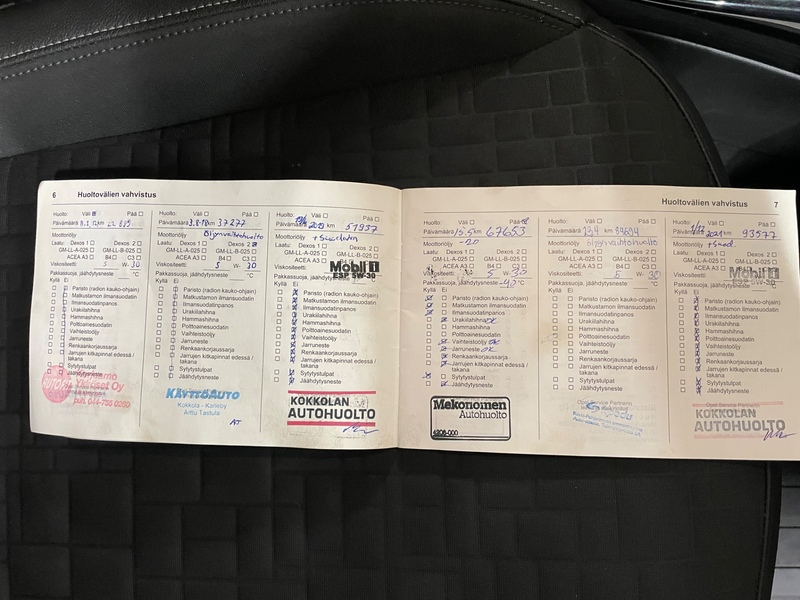 6 Huoltovälien vahvistus
Huolto: Väli ☒ Pää ☐
Päivämäärä km
Moottoriöljy
Laatu: Dexos 1 ☐ Dexos 2 ☐
GM-LL-A-025 ☐ GM-LL-B-025 ☐
ACEA A3 ☐ B4 ☐ C3 ☐
Viskositeetti 5 W- 30
Pakkassuoja, jäähdytysneste °C
Kyllä Ei
Paristo (radion kauko-ohjain)
Matkustamon ilmansuodatin
Ilmansuodatinpanos
Urakilahihna
Hammashihna
Polttoainesuodatin
Vaihteistoöljy
Jarruneste
Renkaankorjaussarja
Jarrujen kitkapinnat edessä /
takana
Sytytystulpat
Jäähdytysneste
Huolto: Väli ☐ Pää ☐
Päivämäärä 3.8.18 km 37277
Moottoriöljy Öljynvaihtohuolto
Laatu: Dexos 1 ☐ Dexos 2 ☒
GM-LL-A-025 ☐ GM-LL-B-025 ☐
ACEA A3 ☐ B4 ☐ C3 ☐
Viskositeetti 5 W- 30
Pakkassuoja, jäähdytysneste °C
Kyllä Ei
Paristo (radion kauko-ohjain)
Matkustamon ilmansuodatin
Ilmansuodatinpanos
Urakilahihna
Hammashihna
Polttoainesuodatin
Vaihteistoöljy
Jarruneste
Renkaankorjaussarja
Jarrujen kitkapinnat edessä /
takana
Sytytystulpat
Jäähdytysneste
KÄYTTÖAUTO
Kokkola - Karleby
Arttu Tastula
AT
Huolto: Väli ☐ Pää ☐
Päivämäärä 2019 km 51937
Moottoriöljy + Suodatin
Laatu: Dexos 1 ☐ Dexos 2 ☐
GM-LL-A-025 ☐ GM-LL-B-025 ☐
ACEA A3 ☐
Viskositeetti
Mobil 1
ESP 5W-30
Pakkassuoja, jäähdytysneste
Kyllä Ei
Paristo (radion kauko-ohjain)
Matkustamon ilmansuodatin
Ilmansuodatinpanos
Urakilahihna
Hammashihna
Polttoainesuodatin
Vaihteistoöljy
Jarruneste
Renkaankorjaussarja
Jarrujen kitkapinnat edessä /
takana
Sytytystulpat
Jäähdytysneste
KOKKOLAN
AUTOHUOLTO
Huoltovälien vahvistus 7
Huolto: Väli ☐ Pää
Päivämäärä 15.5 km 67653
Moottoriöljy -20
Laatu: Dexos 1 ☐ Dexos 2 ☐
GM-LL-A-025 ☐ GM-LL-B-025 ☐
ACEA A3 ☐ B4 ☐ C3 ☐
5 W- 30
Pakkassuoja, jäähdytysneste -40 °C
Kyllä Ei
Paristo (radion kauko-ohjain)
Matkustamon ilmansuodatin
Ilmansuodatinpanos
Urakilahihna
Hammashihna
Polttoainesuodatin
Vaihteistoöljy
Jarruneste OK
Renkaankorjaussarja
Jarrujen kitkapinnat edessä /
takana
Sytytystulpat
Jäähdytysneste
Mekonomen
Autohuolto
4206-000
Huolto: Väli ☐ Pää ☐
Päivämäärä km
Moottoriöljy öljynvaihtohuolto
Laatu: Dexos 1 ☐ Dexos 2 ☐
GM-LL-A-025 ☐ GM-LL-B-025 ☐
ACEA A3 ☐ B4 ☐ C3 ☐
Viskositeetti 5 W- 30
Pakkassuoja, jäähdytysneste °C
Kyllä Ei
Paristo (radion kauko-ohjain)
Matkustamon ilmansuodatin
Ilmansuodatinpanos
Urakilahihna
Hammashihna
Polttoainesuodatin
Vaihteistoöljy
Jarruneste
Renkaankorjaussarja
Jarrujen kitkapinnat edessä /
takana
Sytytystulpat
Jäähdytysneste
Opel Service Partners
Huolto: Väli ☐ Pää ☐
Päivämäärä 2021 km 93577
Moottoriöljy + Suod.
Laatu: Dexos 1 ☐ Dexos 2 ☐
GM-LL-A-025 ☐ GM-LL-B-025 ☐
ACEA A3 ☐
Viskositeetti
Mobil 1
ESP 5W-30
Pakkassuoja, jäähdytysneste
Kyllä Ei
Paristo (radion kauko-ohjain)
Matkustamon ilmansuodatin
Ilmansuodatinpanos
Urakilahihna
Hammashihna
Polttoainesuodatin
Vaihteistoöljy
Jarruneste
Renkaankorjaussarja
Jarrujen kitkapinnat edessä /
takana
Sytytystulpat
Jäähdytysneste
Opel Service Partners
KOKKOLAN
AUTOHUOLTO